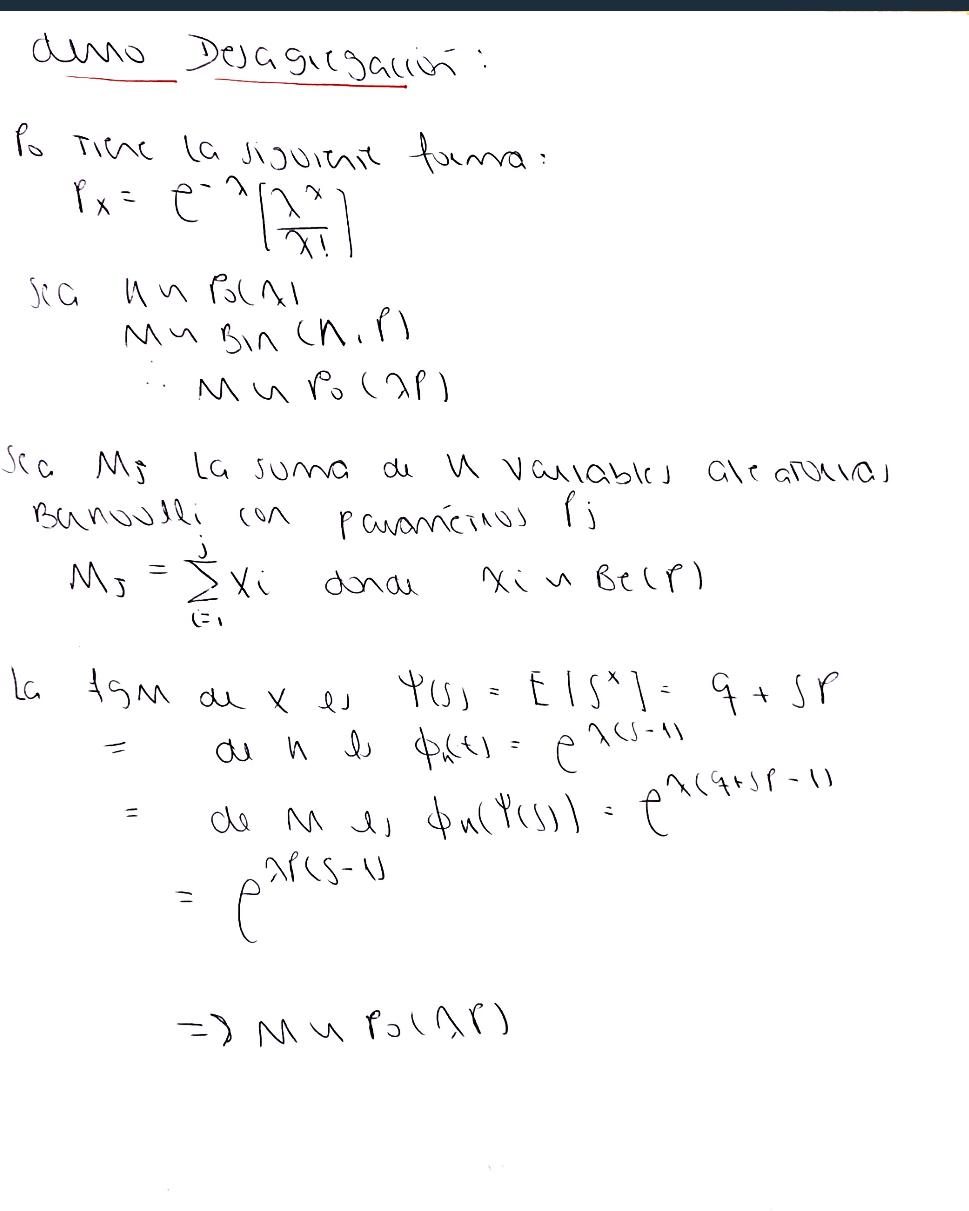 demo Desagregación:
Po Tiene la siguiente forma:
Px = e^-λ [λ^x / x!]
sea N ~ Po(λ)
M ~ Bin (n, p)
∴ M ~ Po (λp)
Sea Mj La suma de N variables aleatorias
Bernoulli con parámetros Pj
MJ = Σ_{i=1}^{j} Xi donde Xi ~ Be(p)
La fgm de x es Ψ(s) = E[S^x] = q + sp
= de N es ϕn(t) = e^λ(s-1)
= de M es ϕn(Ψ(s)) = e^λ(q+sp-1)
= e^λp(s-1)
=> M ~ Po(λp)